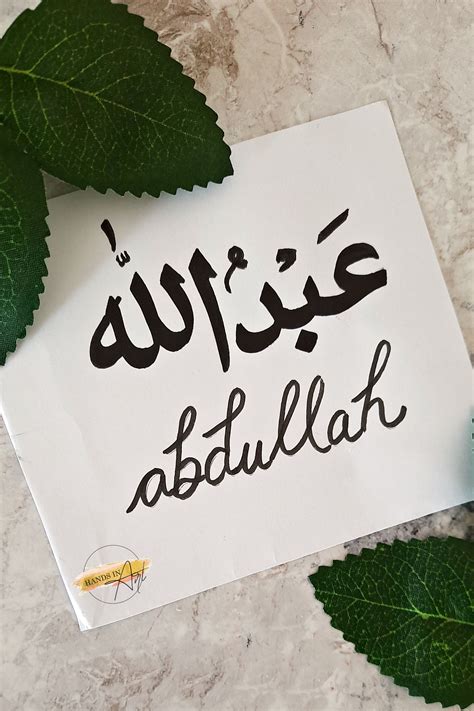 عَبْدُ اللّٰه
abdullah
HANDS IN
Art